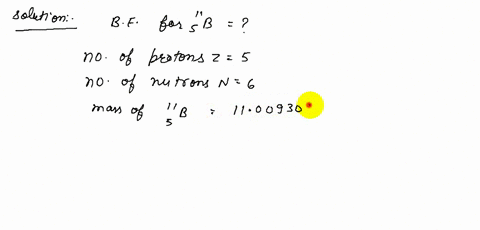 Solution:. B.E. for ¹¹₅B = ?
no. of protons Z = 5
no. of nutrons N = 6
mass of ¹¹₅B = 11.00930